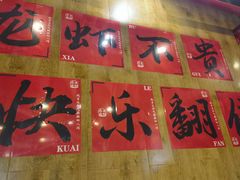 龙 虾 不 贵
XIA BU GUI
快 乐 翻 倍
KUAI LE FAN